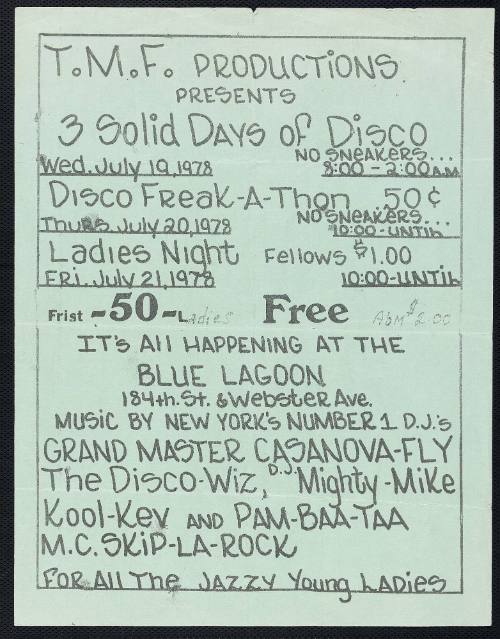 T.M.F. PRODUCTiONS
PRESENTS
3 Solid DAYS of Disco
NO SNEAKERS...
Wed. July 19, 1978 8:00 - 2:00 A.M.
Disco FREAK-A-Thon 50¢
NO SNEAKERS...
Thurs. July 20, 1978 10:00-UNTIL
Ladies Night Fellows $1.00
FRI. July 21, 1978 10:00-UNTIL
Frist -50- Ladies Free Adm $2.00
IT'S All HAPPENING AT THE
BLUE LAGOON
184th. St. & Webster Ave.
MUSIC BY NEW YORK'S NUMBER 1 D.J.'s
GRAND MASTER CASANOVA-FLY
The Disco-Wiz, D.J. Mighty-Mike
Kool-Kev AND PAM-BAA-TAA
M.C. SKiP-LA-ROCK
FOR All The JAZZY Young LADIES